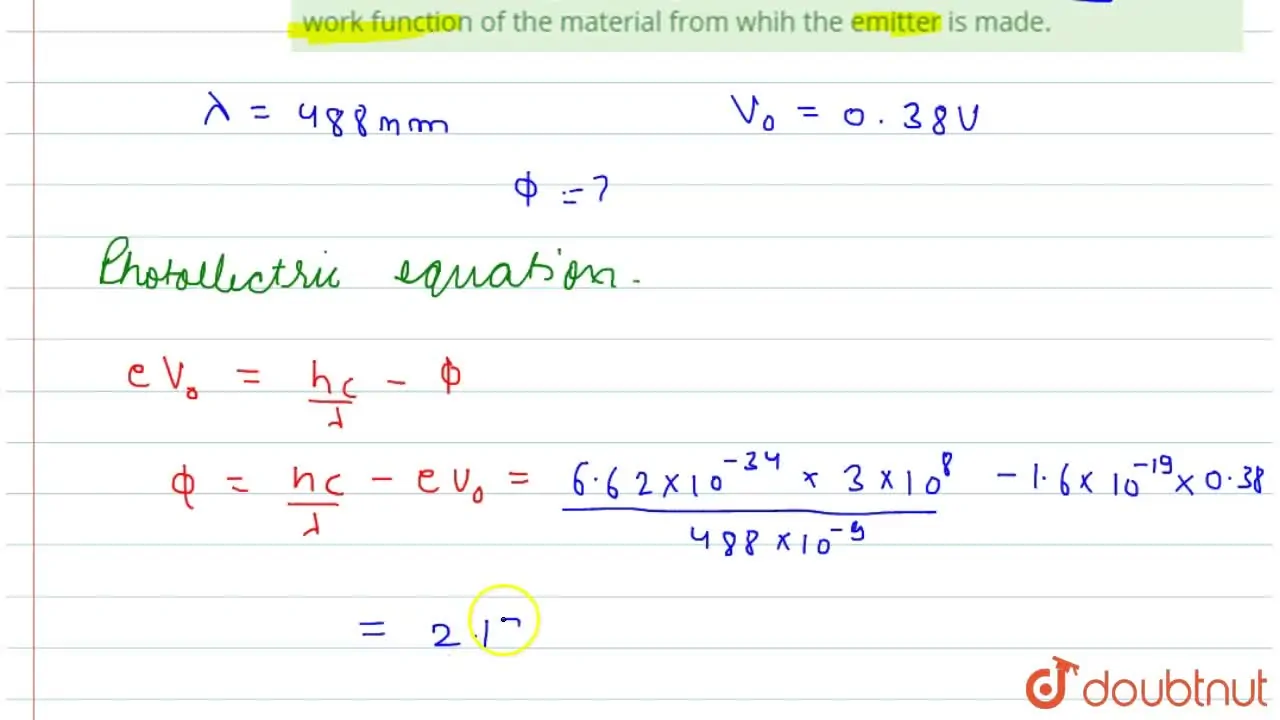 work function of the material from whih the emitter is made.
λ = 488nm V₀ = 0.38V
ϕ = ?
Photollectric equation.
eV₀ = hc/λ - ϕ
ϕ = hc/λ - eV₀ = 6.62×10⁻³⁴ × 3×10⁸/488×10⁻⁹ - 1.6×10⁻¹⁹×0.38
= 2.1
doubtnut